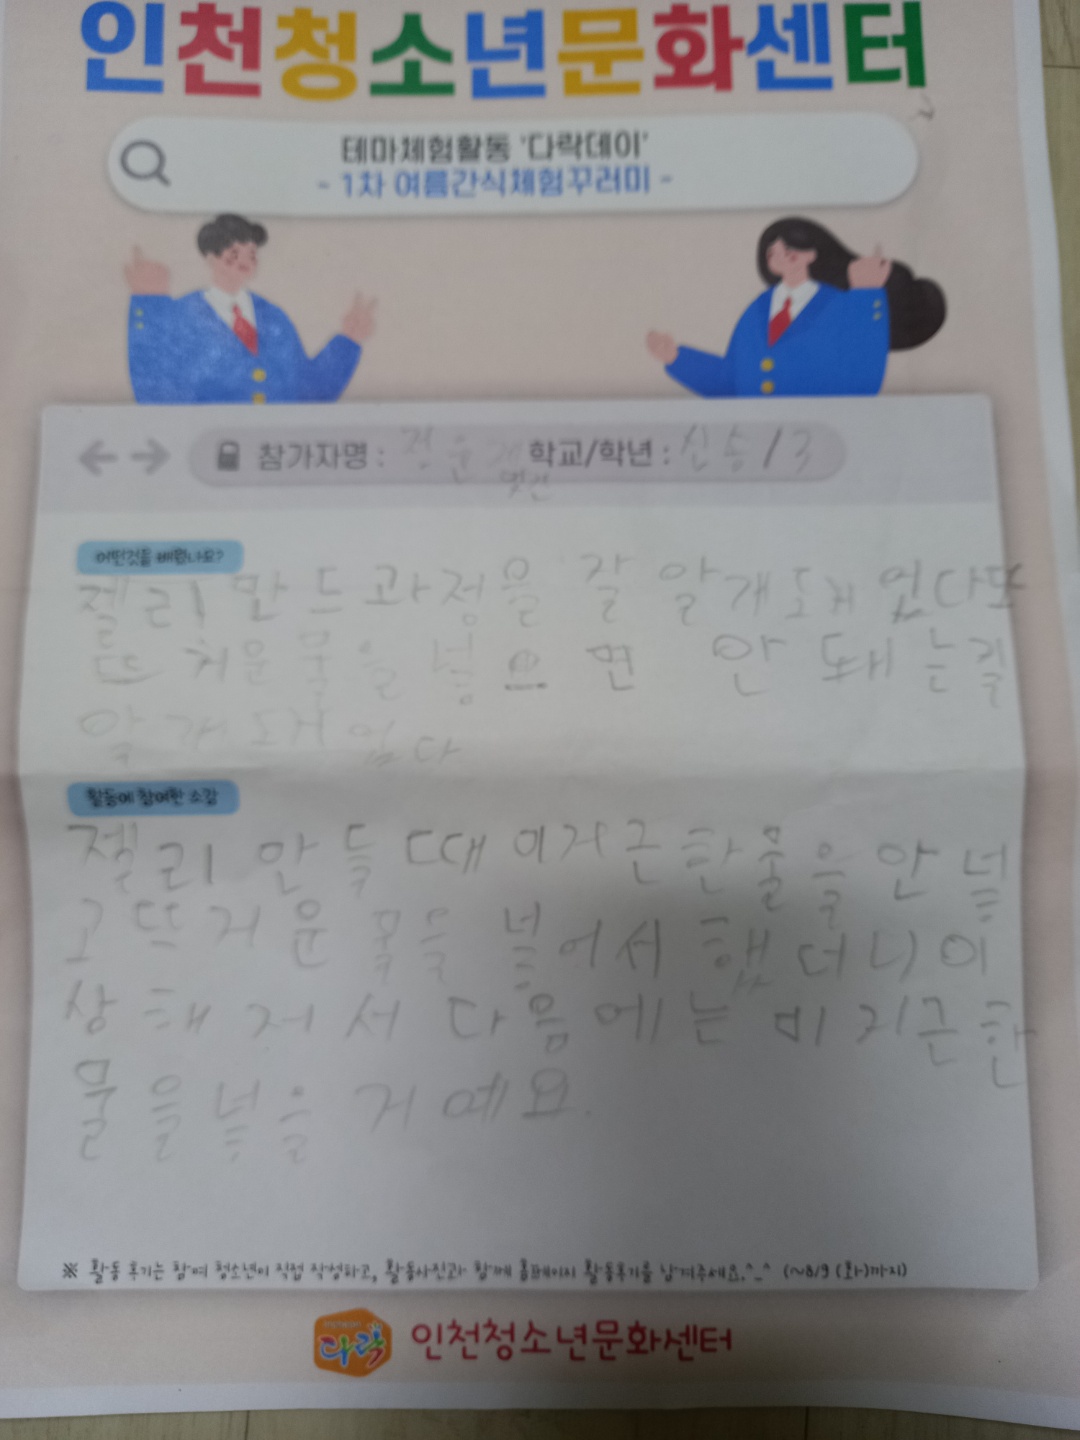 인천청소년문화센터
테마체험활동 '다락데이'
- 1차 여름간식체험꾸러미 -
참가자명 : 정윤 학교/학년 : 신송 / 3
어떤것을 배웠나요?
젤리 만드 과정을 잘 알개 돼 었다 또
뜨 거운 물을 넣으면 안 돼 는걸
알개 돼 었다
활동에 참여한 소감
젤리 만들 때 미지근한 물을 안 넣
고 뜨거운 물을 넣어서 했더니 이
상해저서 다음에는 미지근한
물을 넣을 거예요.
※ 활동 후기는 참여 청소년이 직접 작성하고, 활동사진과 함께 홈페이지 활동후기를 남겨주세요.^_^ (~8/9 (화)까지)
다락 인천청소년문화센터